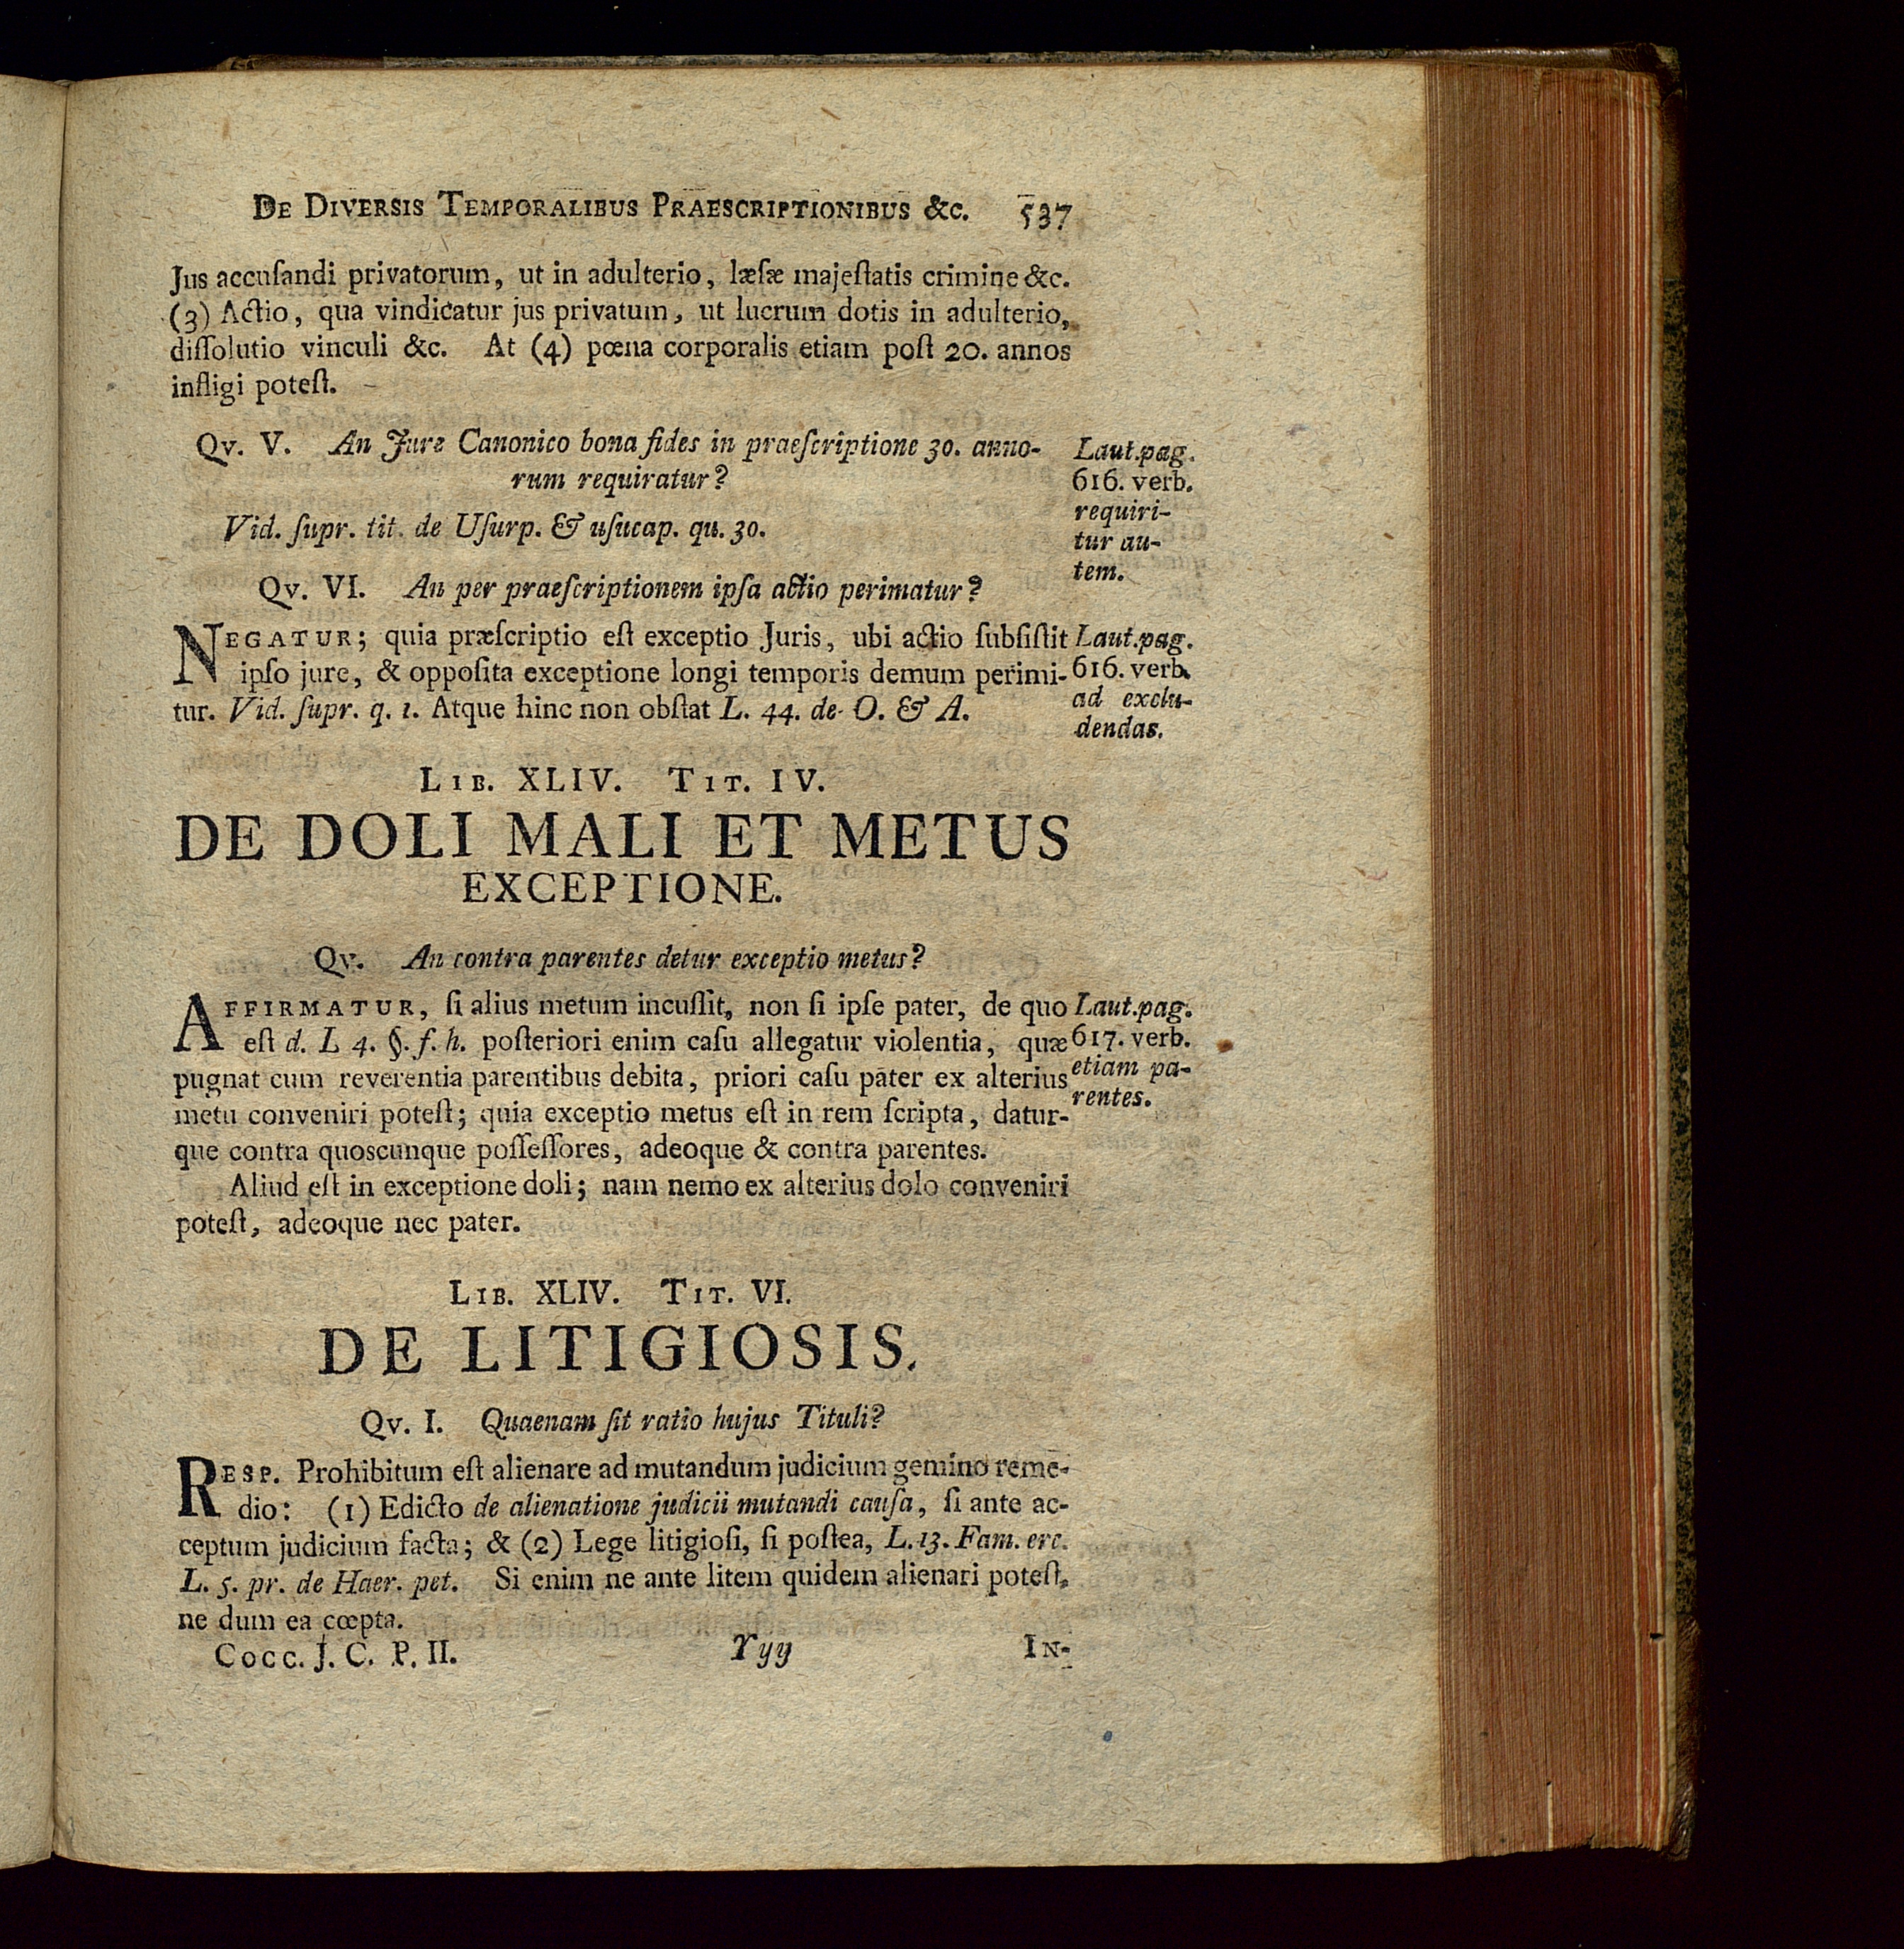 De Diversis Temporalibus Praescriptionibus &c. 537
Jus accuſandi privatorum, ut in adulterio, læſæ majeſtatis crimine &c.
(3) Actio, qua vindicatur jus privatum, ut lucrum dotis in adulterio,
diſſolutio vinculi &c. At (4) pœna corporalis etiam poſt 20. annos
infligi poteſt.
Qv. V. An Jure Canonico bona fides in praeſcriptione 30. anno-
rum requiratur?
Laut. pag.
616. verb.
requiri-
tur au-
tem.
Vid. ſupr. tit. de Uſurp. & uſucap. qu. 30.
Qv. VI. An per praeſcriptionem ipſa actio perimatur?
NEGATUR; quia præſcriptio eſt exceptio Juris, ubi actio ſubſiſtit
ipſo jure, & oppoſita exceptione longi temporis demum perimi-
tur. Vid. ſupr. q. 1. Atque hinc non obſtat L. 44. de O. & A.
Laut. pag.
616. verb.
ad exclu-
dendas.
Lib. XLIV. Tit. IV.
DE DOLI MALI ET METUS
EXCEPTIONE.
Qv. An contra parentes detur exceptio metus?
AFFIRMATUR, ſi alius metum incuſſit, non ſi ipſe pater, de quo
eſt d. L 4. §. f. h. poſteriori enim caſu allegatur violentia, quæ
pugnat cum reverentia parentibus debita, priori caſu pater ex alterius
metu conveniri poteſt; quia exceptio metus eſt in rem ſcripta, datur-
que contra quoscunque poſſeſſores, adeoque & contra parentes.
Laut. pag.
617. verb.
etiam pa-
rentes.
Aliud eſt in exceptione doli; nam nemo ex alterius dolo conveniri
poteſt, adeoque nec pater.
Lib. XLIV. Tit. VI.
DE LITIGIOSIS.
Qv. I. Quaenam ſit ratio hujus Tituli?
RESP. Prohibitum eſt alienare ad mutandum judicium gemino reme-
dio: (1) Edicto de alienatione judicii mutandi cauſa, ſi ante ac-
ceptum judicium facta; & (2) Lege litigioſi, ſi poſtea, L. 13. Fam. erc.
L. 5. pr. de Haer. pet. Si enim ne ante litem quidem alienari poteſt,
ne dum ea cœpta.
Cocc. J. C. P. II. Yyy In-